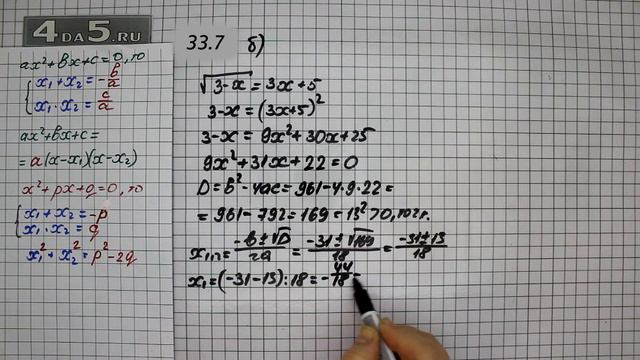 4DA5.RU
ax²+bx+c=0, то
{ x₁+x₂=-b/a
x₁·x₂=c/a
ax²+bx+c=
=a(x-x₁)(x-x₂)
x²+px+q=0, то
{ x₁+x₂=-p
x₁·x₂=q
x₁²+x₂²=p²-2q
33.7 б)
√(3-x)=3x+5
3-x=(3x+5)²
3-x=9x²+30x+25
9x²+31x+22=0
D=b²-4ac=961-4·9·22=
=961-792=169=13²>0, то 2 г.
x₁,₂=(-b±√D)/2a=(-31±√169)/18=(-31±13)/18
x₁=(-31-13):18=-44/18=